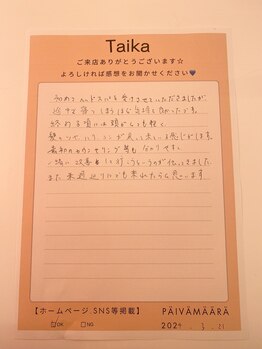 Taika
ご来店ありがとうございます☆
よろしければ感想をお聞かせください💙
初めてヘッドスパを受けさせていただきましたが
途中で寝てしまうほど気持ち良かったです。
終わる頃には頭がとても軽く
髪のツヤ、ハリ、コシが戻って来ている感じがします。
最初のカウンセリング等も分かりやすく
一緒に改善
伝ってきました。
また 来週辺りにでも来れたらと思います
【ホームページ SNS等掲載】
PÄIVÄMÄÄRÄ
☑OK □NG
2024 . 3 . 21